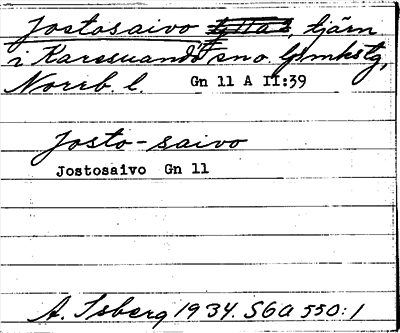 Jostosaivo, tjärn
i Karesuando sn o. lpmkstg,
Norrb. l. Gn 11 A II:39
Josto-saivo
Jostosaivo Gn 11
A. Isberg 1934. SGA 550:1